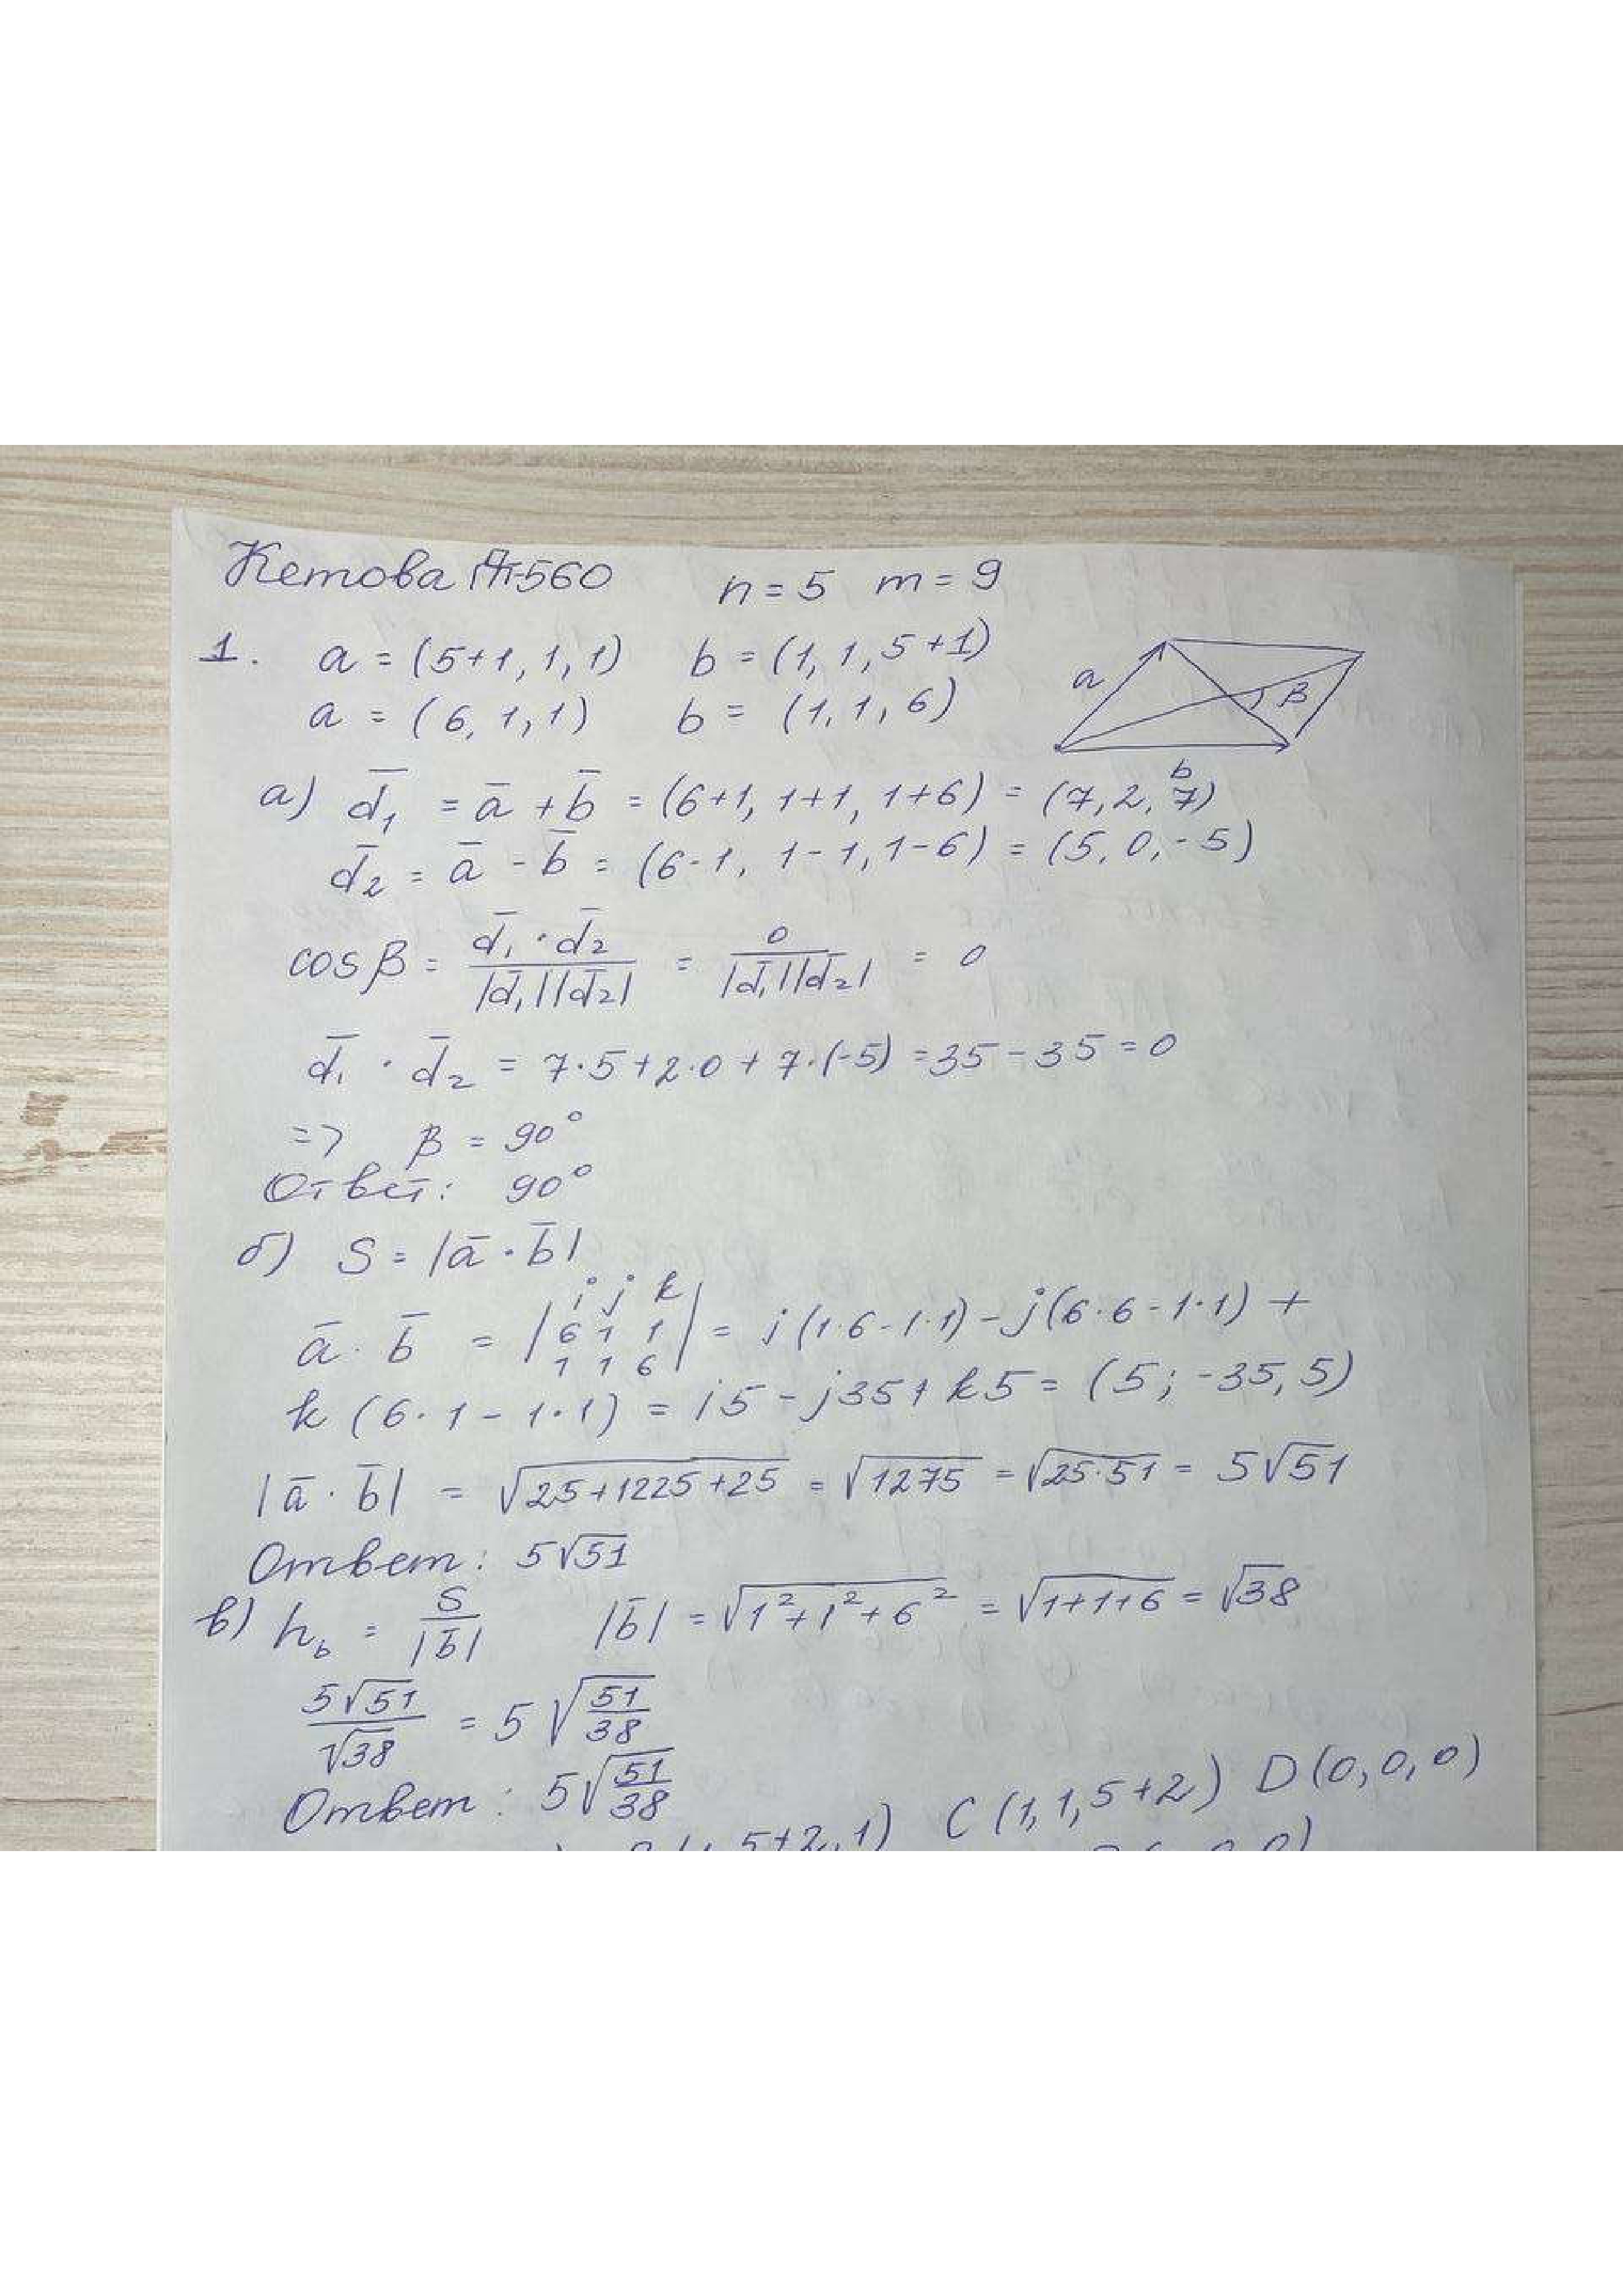 Кетова 560 n = 5 m = 9
1. a = (5+1, 1, 1) b = (1, 1, 5+1)
a = (6, 1, 1) b = (1, 1, 6)
a β b
а) d̅₁ = a̅ + b̅ = (6+1, 1+1, 1+6) = (7, 2, 7)
d̅₂ = a̅ - b̅ = (6-1, 1-1, 1-6) = (5, 0, -5)
cos β = d̅₁ · d̅₂ / |d̅₁||d̅₂| = 0 / |d̅₁||d̅₂| = 0
d̅₁ · d̅₂ = 7·5 + 2·0 + 7·(-5) = 35 - 35 = 0
=> β = 90°
Ответ: 90°
б) S = |a̅ · b̅|
a̅ · b̅ = | i j k ; 6 1 1 ; 1 1 6 | = i (1·6 - 1·1) - j (6·6 - 1·1) +
k (6·1 - 1·1) = i5 - j35 + k5 = (5; -35, 5)
|a̅ · b̅| = √25+1225+25 = √1275 = √25·51 = 5√51
Ответ: 5√51
в) h_b = S / |b̅| |b̅| = √1²+1²+6² = √1+1+6 = √38
5√51 / √38 = 5 √51/38
Ответ: 5√51/38
C (1, 1, 5+2) D (0, 0, 0)
5+2, 1)